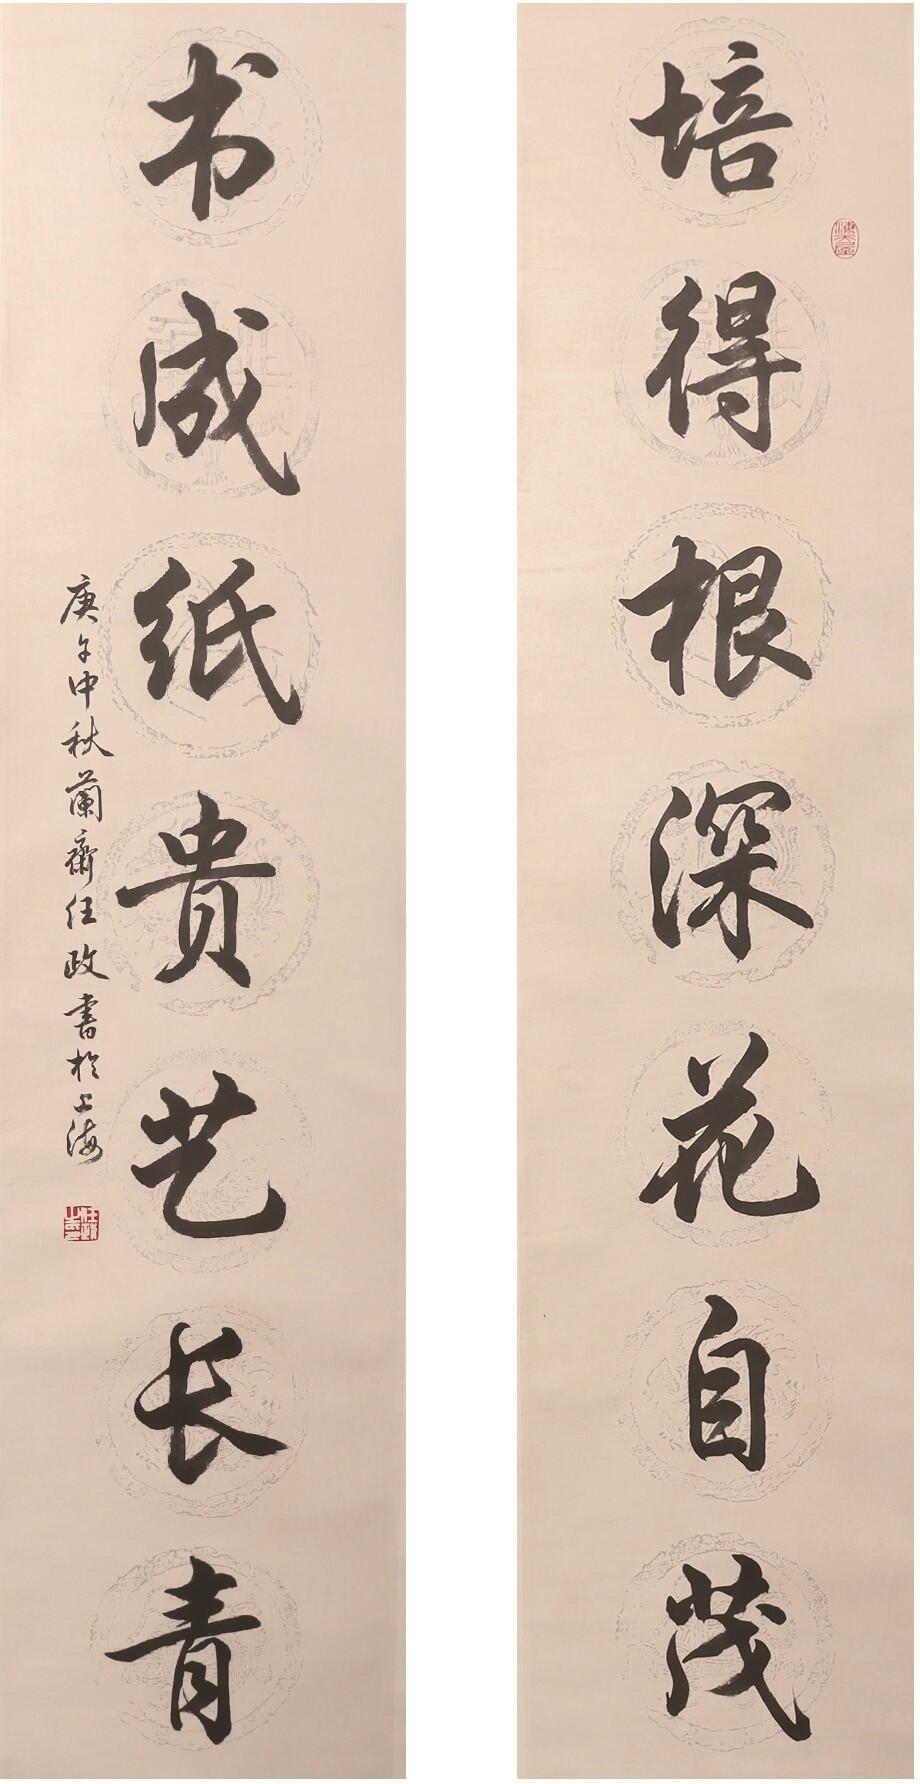 培得根深花自茂
书成纸贵艺长青
庚午中秋蘭齋任政書於上海